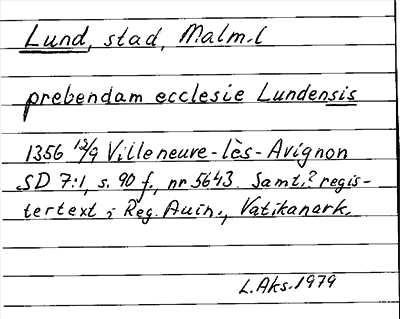 Lund, stad, Malm.l
prebendam ecclesie Lundensis
1356 12/9 Villeneuve-lès-Avignon
SD 7:1, s. 90 f., nr 5643. Samt.? regis-
tertext i Reg. Avin., Vatikanark.
L.Aks. 1979